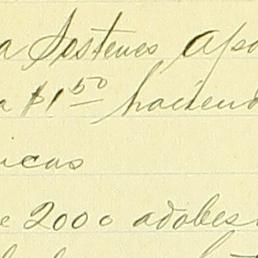 a Sostenes Apo
a $1 50 haciend
icas
e 2000 adobes